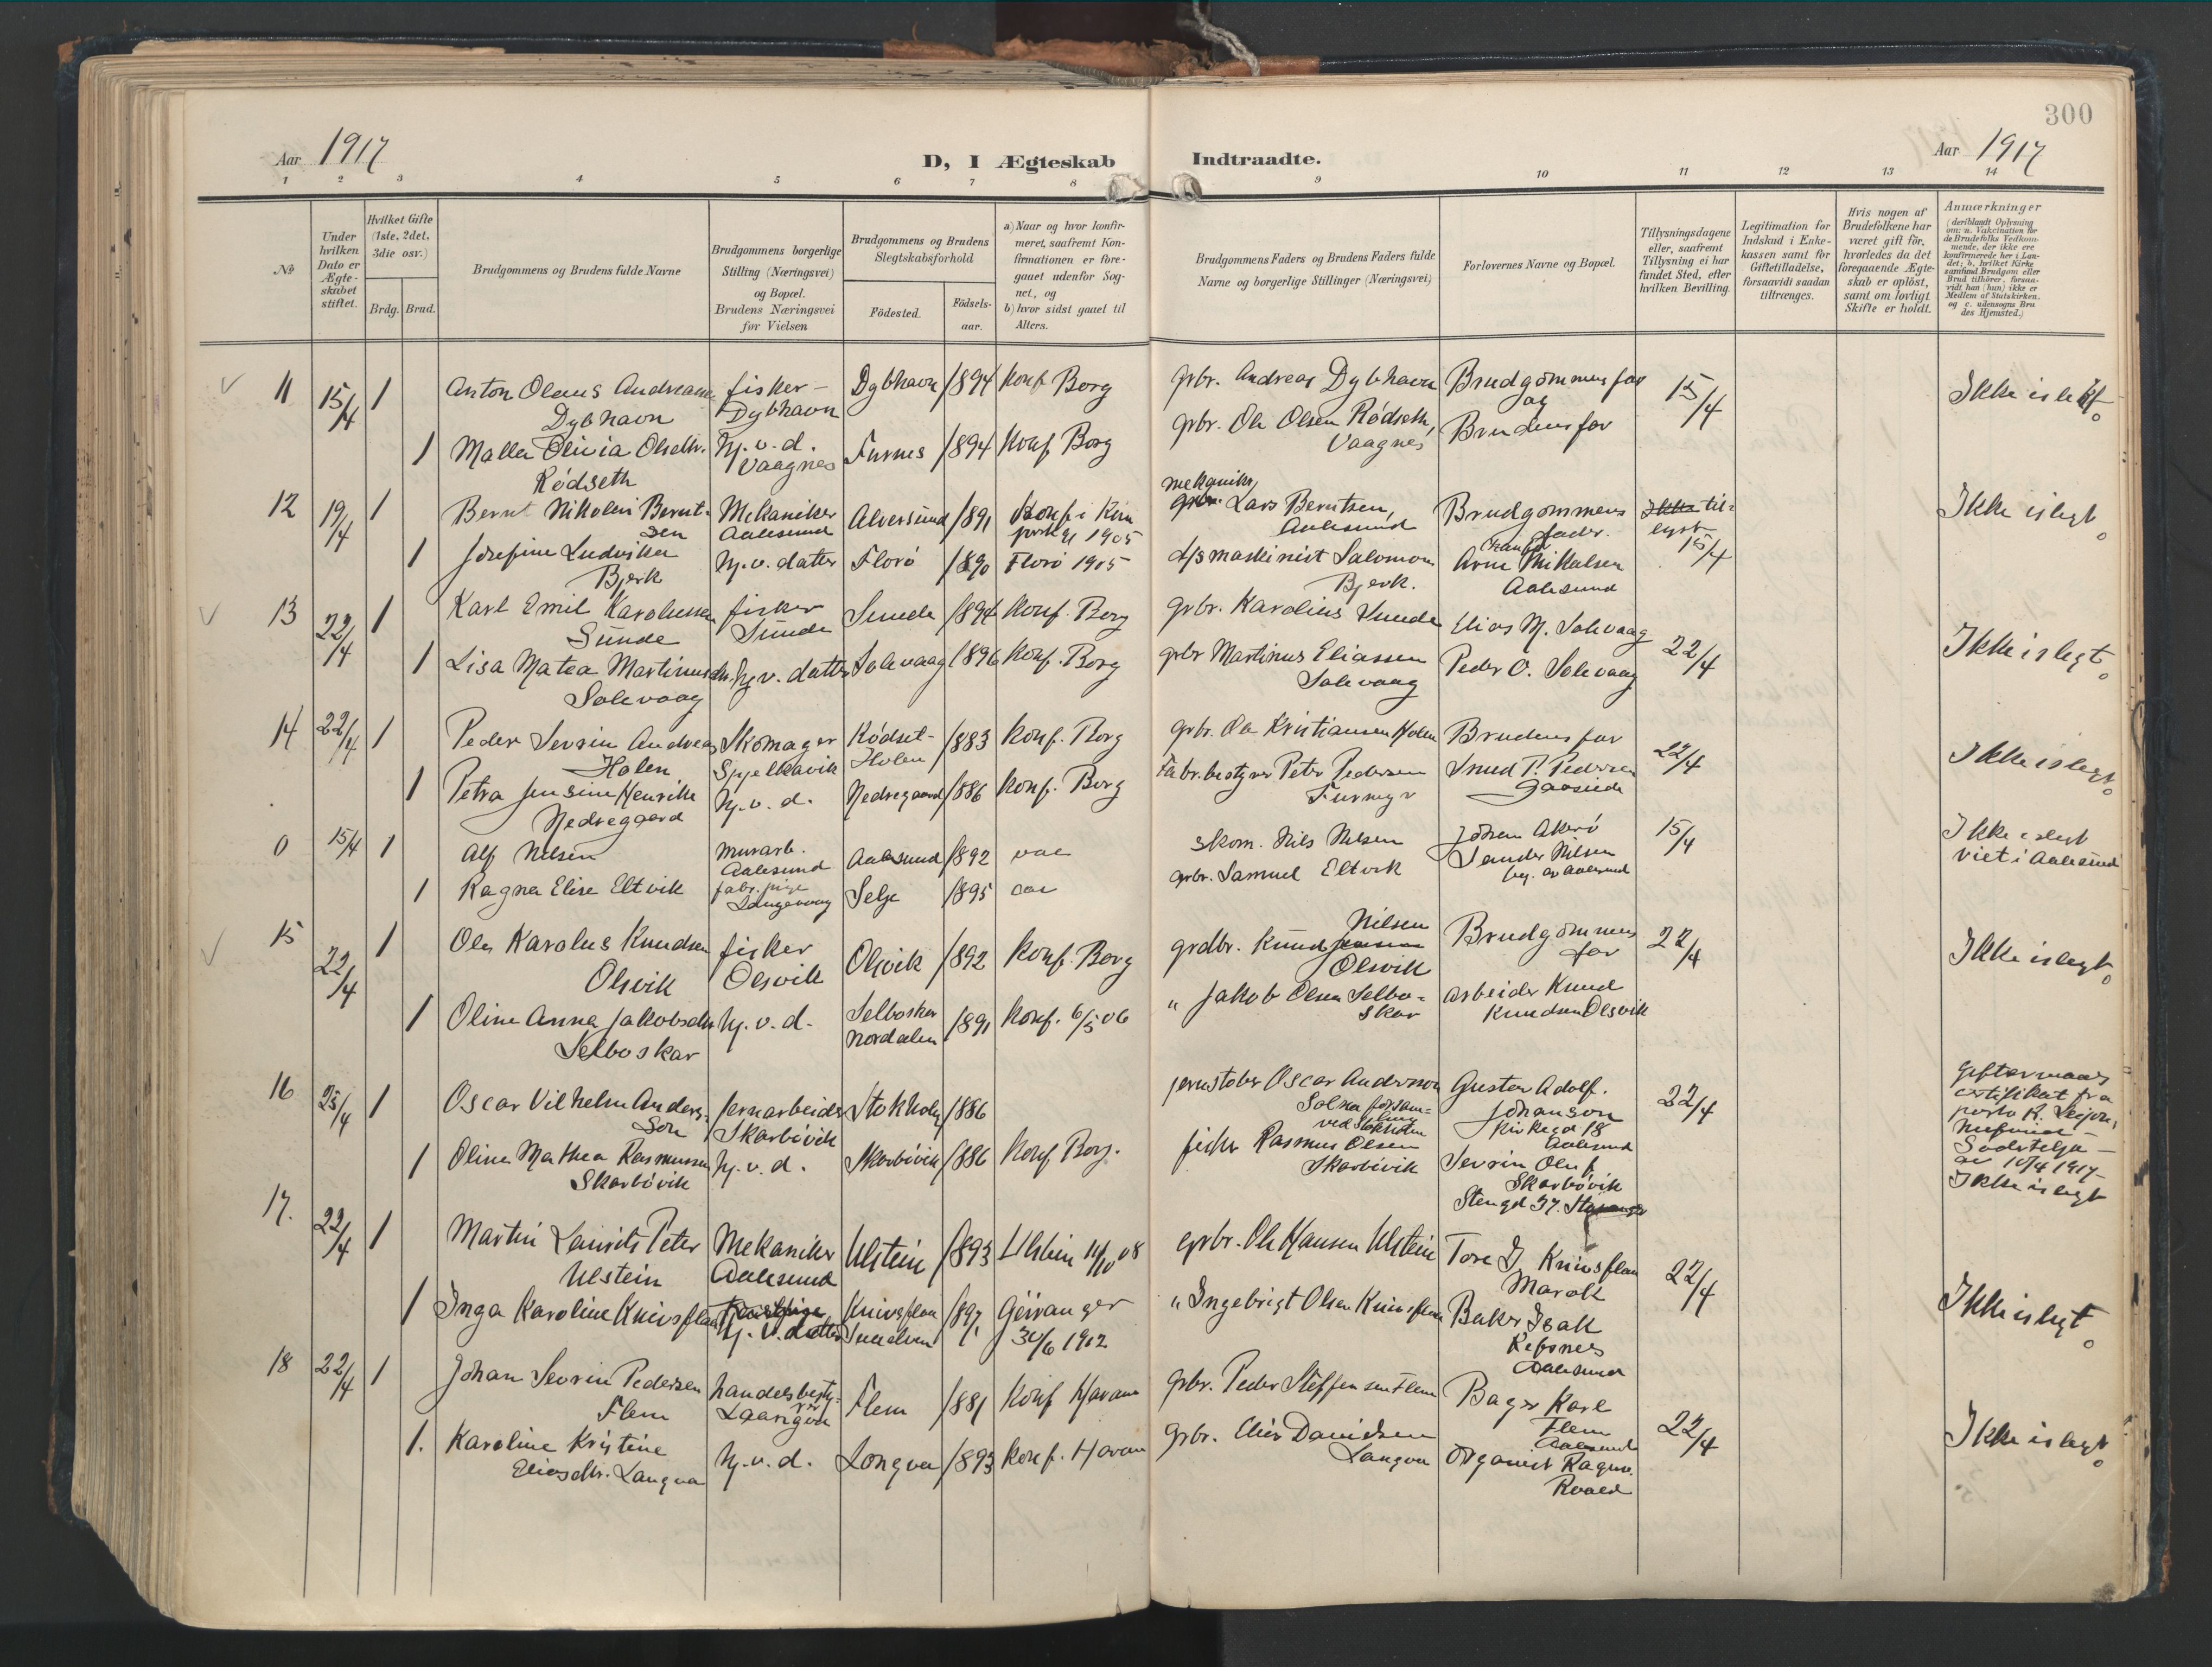 300
Aar 1917
D, I Ægteskab Indtraadte.
Aar 1917
1 2 3 4 5 6 7 8 9 10 11 12 13 14
No
Under hvilken Dato er Ægteskabet stiftet.
Hvilket Gifte (1ste, 2det, 3die osv.)
Brdg. Brud.
Brudgommens og Brudens fulde Navne
Brudgommens borgerlige Stilling (Næringsvei) og Bopæl. Brudens Næringsvei før Vielsen
Brudgommens og Brudens Slegtskabsforhold
Födested.
Födsels-aar.
a) Naar og hvor konfirmeret, saafremt Konfirmationen er foregaaet udenfor Sognet, og
b) hvor sidst gaaet til Alters.
Brudgommens Faders og Brudens Faders fulde Navne og borgerlige Stillinger (Næringsvei)
Forlovernes Navne og Bopæl.
Tillysningsdagene eller, saafremt Tillysning ei har fundet Sted, efter hvilken Bevilling.
Legitimation for Indskud i Enkekassen samt for Giftetilladelse, forsaavidt saadan tiltrænges.
Hvis nogen af Brudefolkene har været gift för, hvorledes da det foregaaende Ægteskab er oplöst, samt om lovligt Skifte er holdt.
Anmærkninger
(deriblandt Oplysning om: a. Vakcination for de Brudefolks Vedkommende, der ikke ere konfirmerede her i Landet; b. hvilket Kirkesamfund Brudgom eller Brud tilhörer, forsaavidt han (hun) ikke er Medlem af Statskirken, og c. udensogns Brudes Hjemsted.)
11 15/4 1 Anton Olaus Andreassen fisker - Dybhavn 1894 Konf Borg grbr. Andreas Dybhavn Brudgommens far 15/4 Ikke i slekt
Dybhavn Dybhavn og
1 Malla Olivia Olsdtr. hj.v.d. Furnes 1894 Konf Borg grbr. Ole Olsen Rødseth, Brudens far
Rødseth Vaagnes Vaagnes
12 19/4 1 Bernt Nikolai Bernt- Mekaniker Alversund 1891 Konf i mekaniker Lars Berntsen, Brudgommens til- Ikke i slegt
sen Aalesund 1905 Aalesund fader. lyst
1 Josefine Ludvika hj.v. datter Florø 1890 Florø 1905 d/s maskinist Salomon Arne Mikalsen 15/4
Bjerk Bjerk. Aalesund
13 22/4 1 Karl Emil Karolussen fisker Sunde 1894 Konf. Borg grbr. Karolius Sunde Elias M. Solevaag 22/4 Ikke i slegt
Sunde Sunde
1 Lisa Matea Martinusdtr. hj.v. datter Solevaag 1896 Konf. Borg grbr Martinus Eliassen Peder O. Solevaag
Solevaag Solevaag
14 22/4 1 Peder Sevrin Andreas Skomager Rødset- 1883 Konf. Borg grbr. Ole Kristiansen Holen Brudens far 22/4 Ikke i slegt
Holen Spjelkavik Holen
1 Petra Jensine Henrikke hj.v.d. Nedregaard 1886 Konf. Borg Fabr.bestyrer Peter Pedersen Knud P. Pedersen
Nedregaard Furmyr
0 15/4 1 Alf Nilsen murarb. Aalesund 1892 vac skom. Nils Nilsen Johan Akerø 15/4 Ikke i slegt
Aalesund Sander Nilsen viet i Aalesund
1 Ragna Elise Eltvik fabr.pige Selje 1895 vac grbr. Samuel Eltvik beg. av Aalesund
Langevaag
15 22/4 1 Ole Karolus Knudsen fisker Olsvik 1892 Konf. Borg grdbr. Knud Nilsen Brudgommens 22/4 Ikke i slegt
Olsvik Olsvik Olsvik far
1 Oline Anna Jakobsdtr hj.v.d. Selboskar 1891 Konf. 6/5 06 " Jakob Olsen Selbo- arbeider Knud
Selboskar Nordalen skar Knudsen Olsvik
16 25/4 1 Oscar Vilhelm Anders- Jernarbeider Stokholm 1886 jernstøber Oscar Anderson Gustav Adolf. 22/4
son Skarbövik Solna Johanson
ved Stokholm Kirkegd 18
Aalesund 10/4 1917
1 Oline Mathea Rasmussen hj.v.d. Skarbövik 1886 Konf Borg. fisker Rasmus Olsen Sevrin Oluf Ikke i slegt
Skarbövik Skarbivik Skarbövik
17. 22/4 1 Martin Laurits Peter Mekaniker Ulstein 1893 Ulstein 11/10 08 grbr. Ole Hansen Ulstein Tore J. Knivsflaa 22/4
Ulstein Aalesund Marok
1 Inga Karoline Knivsflaa hj.v. datter Knivsflaa 1897 Geiranger " Ingebrigt Olsen Knivsflaa Baker Isak Ikke i slegt
Sunelven 30/6 1912 Refsnes
Aalesund
18 22/4 1 Johan Sevrin Pedersen handelsbesty- Flem 1881 Konf Haram grbr. Peder Steffensen Flem Bager Karl 22/4 Ikke i slegt
Flem Flem
Aalesund
1. Karoline Kristine hj.v.d. Longva 1893 Konf. Haram grbr. Elias Davidsen Organist Ragnv.
Eliasdtr. Langva Langva Roald